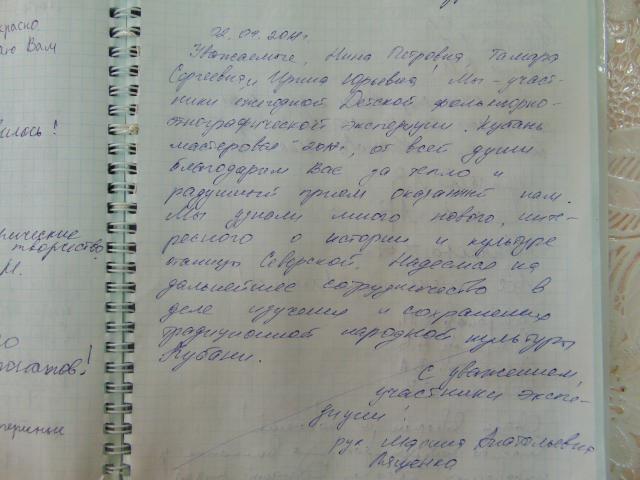 красно
аю Вам
илось!
ические
творчество
М.
Уважаемые, Нина Петровна, Тамара
Сергеевна, и Ирина Юрьевна! Мы - участ-
ники ежегодной Детской фольклорно-
этнографической экспедиции "Кубань
мастеровая 2011", от всей души
благодарим Вас за тепло и
радушный прием оказанный нам.
Мы узнали много нового, инте-
ресного о истории и культуре
станицы Северской. Надеемся на
дальнейшее сотрудничество в
деле изучения и сохранения
традиционной народной культуры
Кубани.
С уважением,
участники экспе-
диции!
рук. Марина Анатольевна